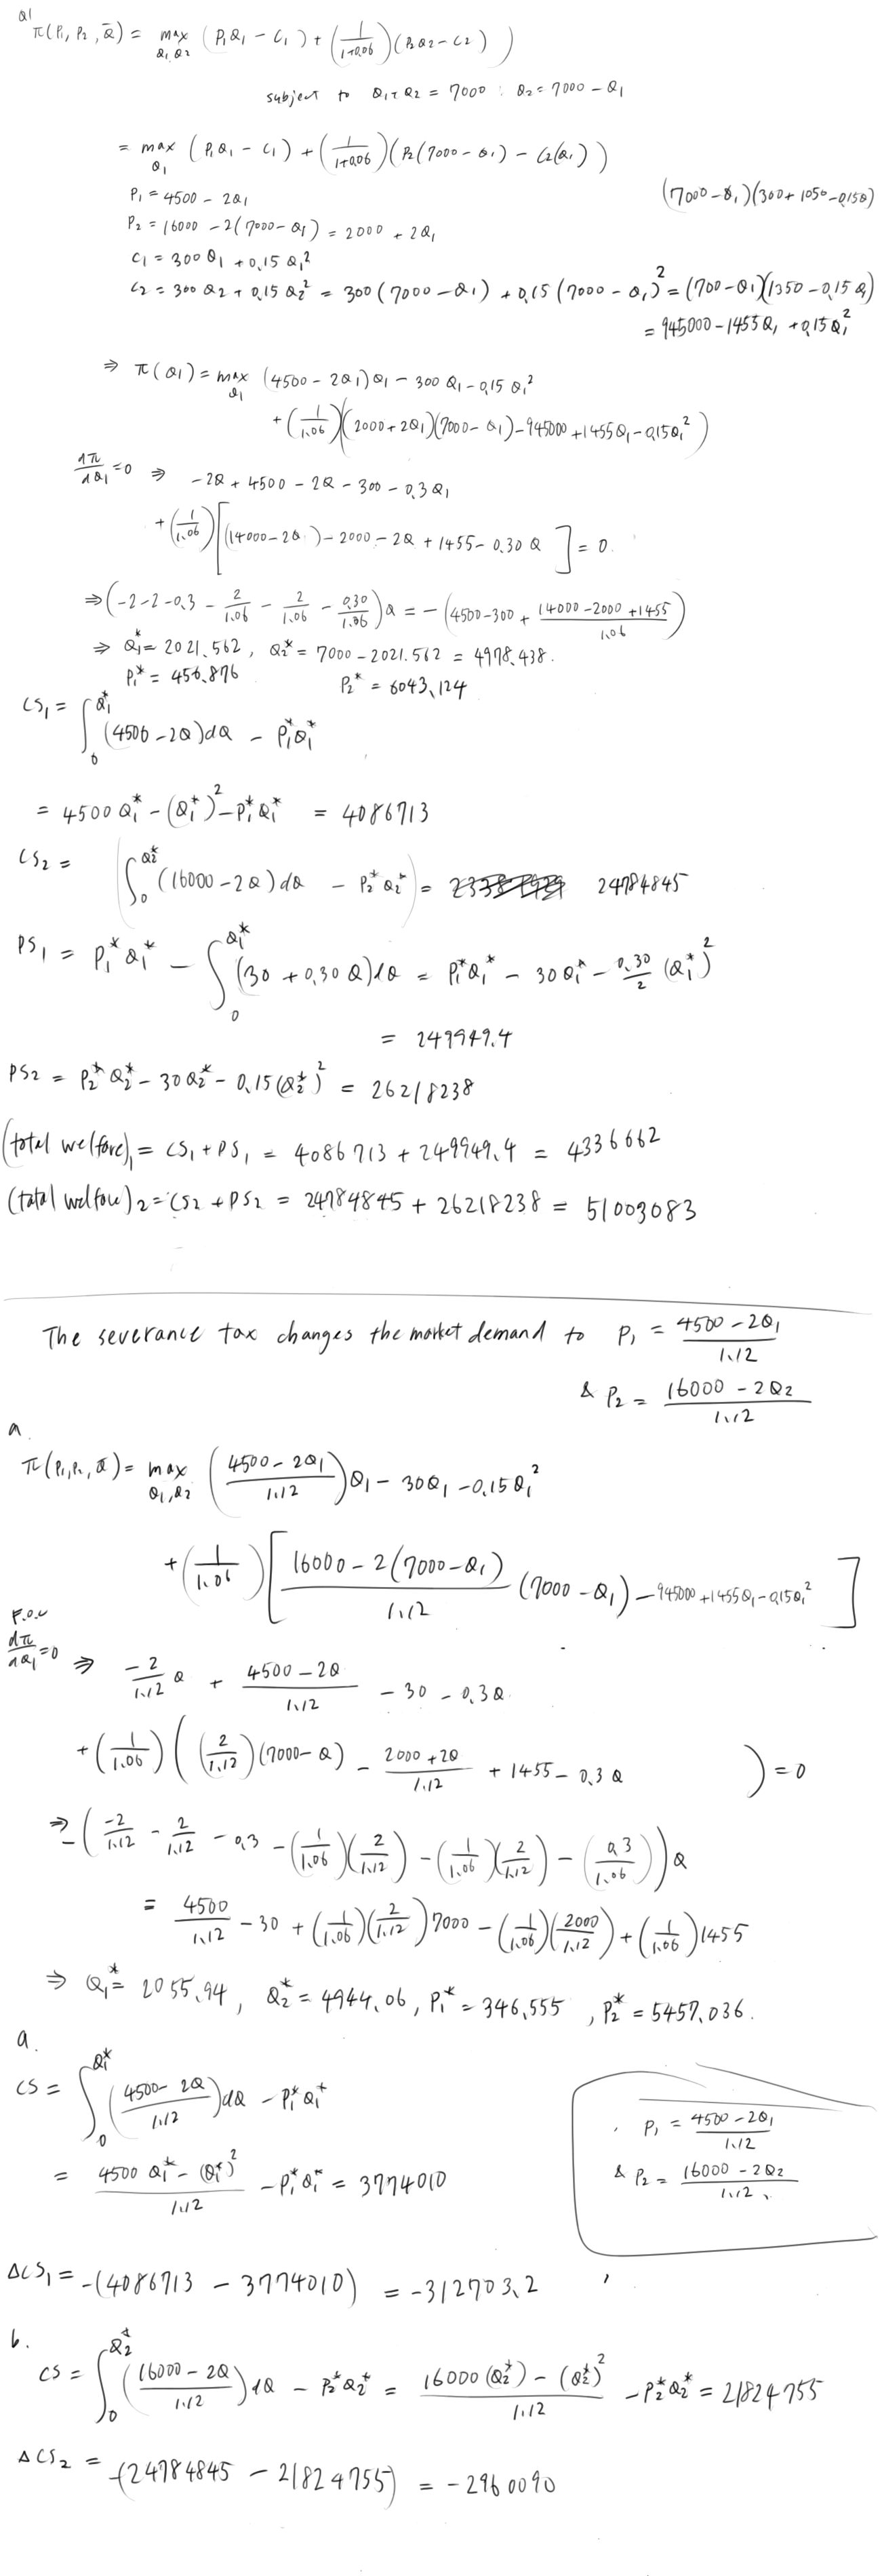 Q1
π(P₁, P₂, Q̄) = max_{Q₁,Q₂} (P₁Q₁ − C₁) + (1/(1+0.06))(P₂Q₂ − C₂))
subject to Q₁ + Q₂ = 7000 : Q₂ = 7000 − Q₁
= max_{Q₁} (P₁Q₁ − C₁) + (1/(1+0.06))(P₂(7000 − Q₁) − C₂(Q₁))
(7000 − Q₁)(300 + 1050 − 0.15Q)
P₁ = 4500 − 2Q₁
P₂ = 16000 − 2(7000 − Q₁) = 2000 + 2Q₁
C₁ = 300Q₁ + 0.15Q₁²
C₂ = 300Q₂ + 0.15Q₂² = 300(7000 − Q₁) + 0.15(7000 − Q₁)² = (700 − Q₁)(1350 − 0.15Q₁)
= 945000 − 1455Q₁ + 0.15Q₁²
⇒ π(Q₁) = max_{Q₁} (4500 − 2Q₁)Q₁ − 300Q₁ − 0.15Q₁²
+ (1/1.06)((2000 + 2Q₁)(7000 − Q₁) − 945000 + 1455Q₁ − 0.15Q₁²)
dπ/dQ₁ = 0 ⇒ −2Q + 4500 − 2Q − 300 − 0.3Q₁
+ (1/1.06)[(14000 − 2Q) − 2000 − 2Q + 1455 − 0.30Q] = 0.
⇒ (−2 − 2 − 0.3 − 2/1.06 − 2/1.06 − 0.30/1.06)Q = −(4500 − 300 + (14000 − 2000 + 1455)/1.06)
⇒ Q₁* = 2021.562, Q₂* = 7000 − 2021.562 = 4978.438.
P₁* = 456.876 P₂* = 6043.124
CS₁ = ∫₀^{Q₁*} (4500 − 2Q)dQ − P₁*Q₁*
= 4500Q₁* − (Q₁*)² − P₁*Q₁* = 4086713
CS₂ = (∫₀^{Q₂*} (16000 − 2Q)dQ − P₂*Q₂*) = 24784845
PS₁ = P₁*Q₁* − ∫₀^{Q₁*} (30 + 0.30Q)dQ = P₁*Q₁* − 30Q₁* − (0.30/2)(Q₁*)²
= 249949.4
PS₂ = P₂*Q₂* − 30Q₂* − 0.15(Q₂*)² = 26218238
(total welfare)₁ = CS₁ + PS₁ = 4086713 + 249949.4 = 4336662
(total welfare)₂ = CS₂ + PS₂ = 24784845 + 26218238 = 51003083
The severance tax changes the market demand to P₁ = (4500 − 2Q₁)/1.12
& P₂ = (16000 − 2Q₂)/1.12
a.
π(P₁, P₂, Q̄) = max_{Q₁,Q₂} ((4500 − 2Q₁)/1.12)Q₁ − 30Q₁ − 0.15Q₁²
+ (1/1.06)[(16000 − 2(7000 − Q₁))/1.12 (7000 − Q₁) − 945000 + 1455Q₁ − 0.15Q₁²]
F.O.C
dπ/dQ₁ = 0 ⇒ (−2/1.12)Q + (4500 − 2Q)/1.12 − 30 − 0.3Q
+ (1/1.06)((2/1.12)(7000 − Q) − (2000 + 2Q)/1.12 + 1455 − 0.3Q) = 0
⇒ −(−2/1.12 − 2/1.12 − 0.3 − (1/1.06)(2/1.12) − (1/1.06)(2/1.12) − (0.3/1.06))Q
= 4500/1.12 − 30 + (1/1.06)(2/1.12)7000 − (1/1.06)(2000/1.12) + (1/1.06)1455
⇒ Q₁* = 2055.94, Q₂* = 4944.06, P₁* = 346.555, P₂* = 5457.036.
a.
CS = ∫₀^{Q₁*} ((4500 − 2Q)/1.12)dQ − P₁*Q₁*
= (4500Q₁* − (Q₁*)²)/1.12 − P₁*Q₁* = 3774010
P₁ = (4500 − 2Q₁)/1.12
& P₂ = (16000 − 2Q₂)/1.12
ΔCS₁ = −(4086713 − 3774010) = −312703.2
b.
CS = ∫₀^{Q₂*} ((16000 − 2Q)/1.12)dQ − P₂*Q₂* = (16000(Q₂*) − (Q₂*)²)/1.12 − P₂*Q₂* = 21824755
ΔCS₂ = −(24784845 − 21824755) = −2960090